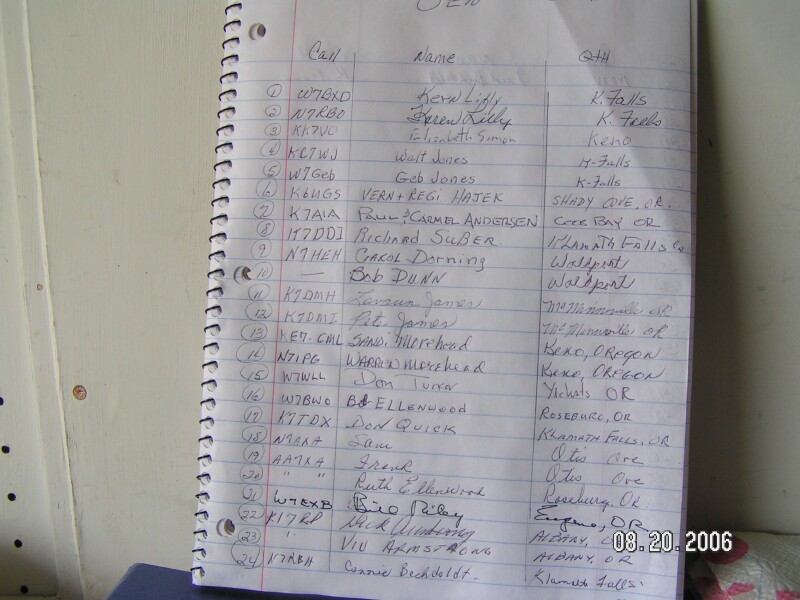 Call Name QTH
1 W7BXD Kern Lilly K. Falls
2 N7RBO Karen Lilly K. Falls
3 KK7UO Elizabeth Simon Keno
4 KC7WJ Walt Jones K-Falls
5 W7Geb Geb Jones K-Falls
6 K6UGS VERN + REGI HAJEK SHADY COVE, OR.
7 K7AIA PAUL & CARMEL ANDERSEN COOS BAY OR
8 K7DDI Richard SuBER. Klamath Falls
9 N7HEH CAROL Dorning Waldport
10 — Bob DUNN Waldport
11 K7DMH James McMinnville OR
12 K7DMI Pete James McMinnville OR
13 KE7.CML SANDI Morehead Keno, OREGON
14 N7IPG WARREN Morehead Keno, OREGON
15 W7WLL Don Tucker Yachats OR
16 W7BWO Bd ELLENWOOD ROSEBURG, OR
17 K7TDX DON QUICK KLAMATH FALLS, OR
18 N7AXA Sam Otis Ore
19 AA7XA Frank Otis Ore
20 " " Ruth Ellenwood Roseburg, OR.
21 W7EXB Bill Riley Eugene, OR
22 K17RP Dick Armstrong ALBANY,
23 " VIV ARMSTRONG ALBANY, OR
24 N7RBH Connie Bechdoldt. Klamath Falls.
08.20.2006